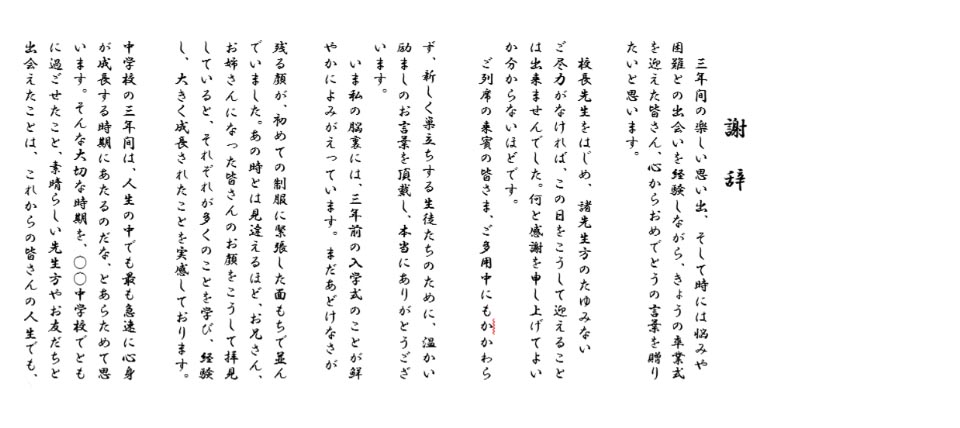 謝 辞
三年间の楽しい思い出、そして時には悩みや
困難との出会いを経験しながら、きょうの卒業式
を迎えた皆さん、心からおめでとうの言葉を贈り
たいと思います。
校長先生をはじめ、諸先生方のたゆみない
ご尽力がなければ、この日をこうして迎えること
は出来ませんでした。何と感謝を申し上げてよい
か分からないほどです。
ご列席の来賓の皆さま、ご多用中にもかかわら
ず、新しく巣立ちする生徒たちのために、温かい
励ましのお言葉を頂戴し、本当にありがとうござ
います。
いま私の脳裏には、三年前の入学式のことが鮮
やかによみがえっています。まだあどけなさが
残る顔が、初めての制服に緊張した面もちで並ん
でいました。あの時とは見違えるほど、お兄さん、
お姉さんになった皆さんのお顔をこうして拝見
していると、それぞれが多くのことを学び、経験
し、大きく成長されたことを実感しております。
中学校の三年間は、人生の中でも最も急速に心身
が成長する時期にあたるのだな、とあらためて思
います。そんな大切な時期を、〇〇中学校でとも
に過ごせたこと、素晴らしい先生方やお友だちと
出会えたことは、これからの皆さんの人生でも、